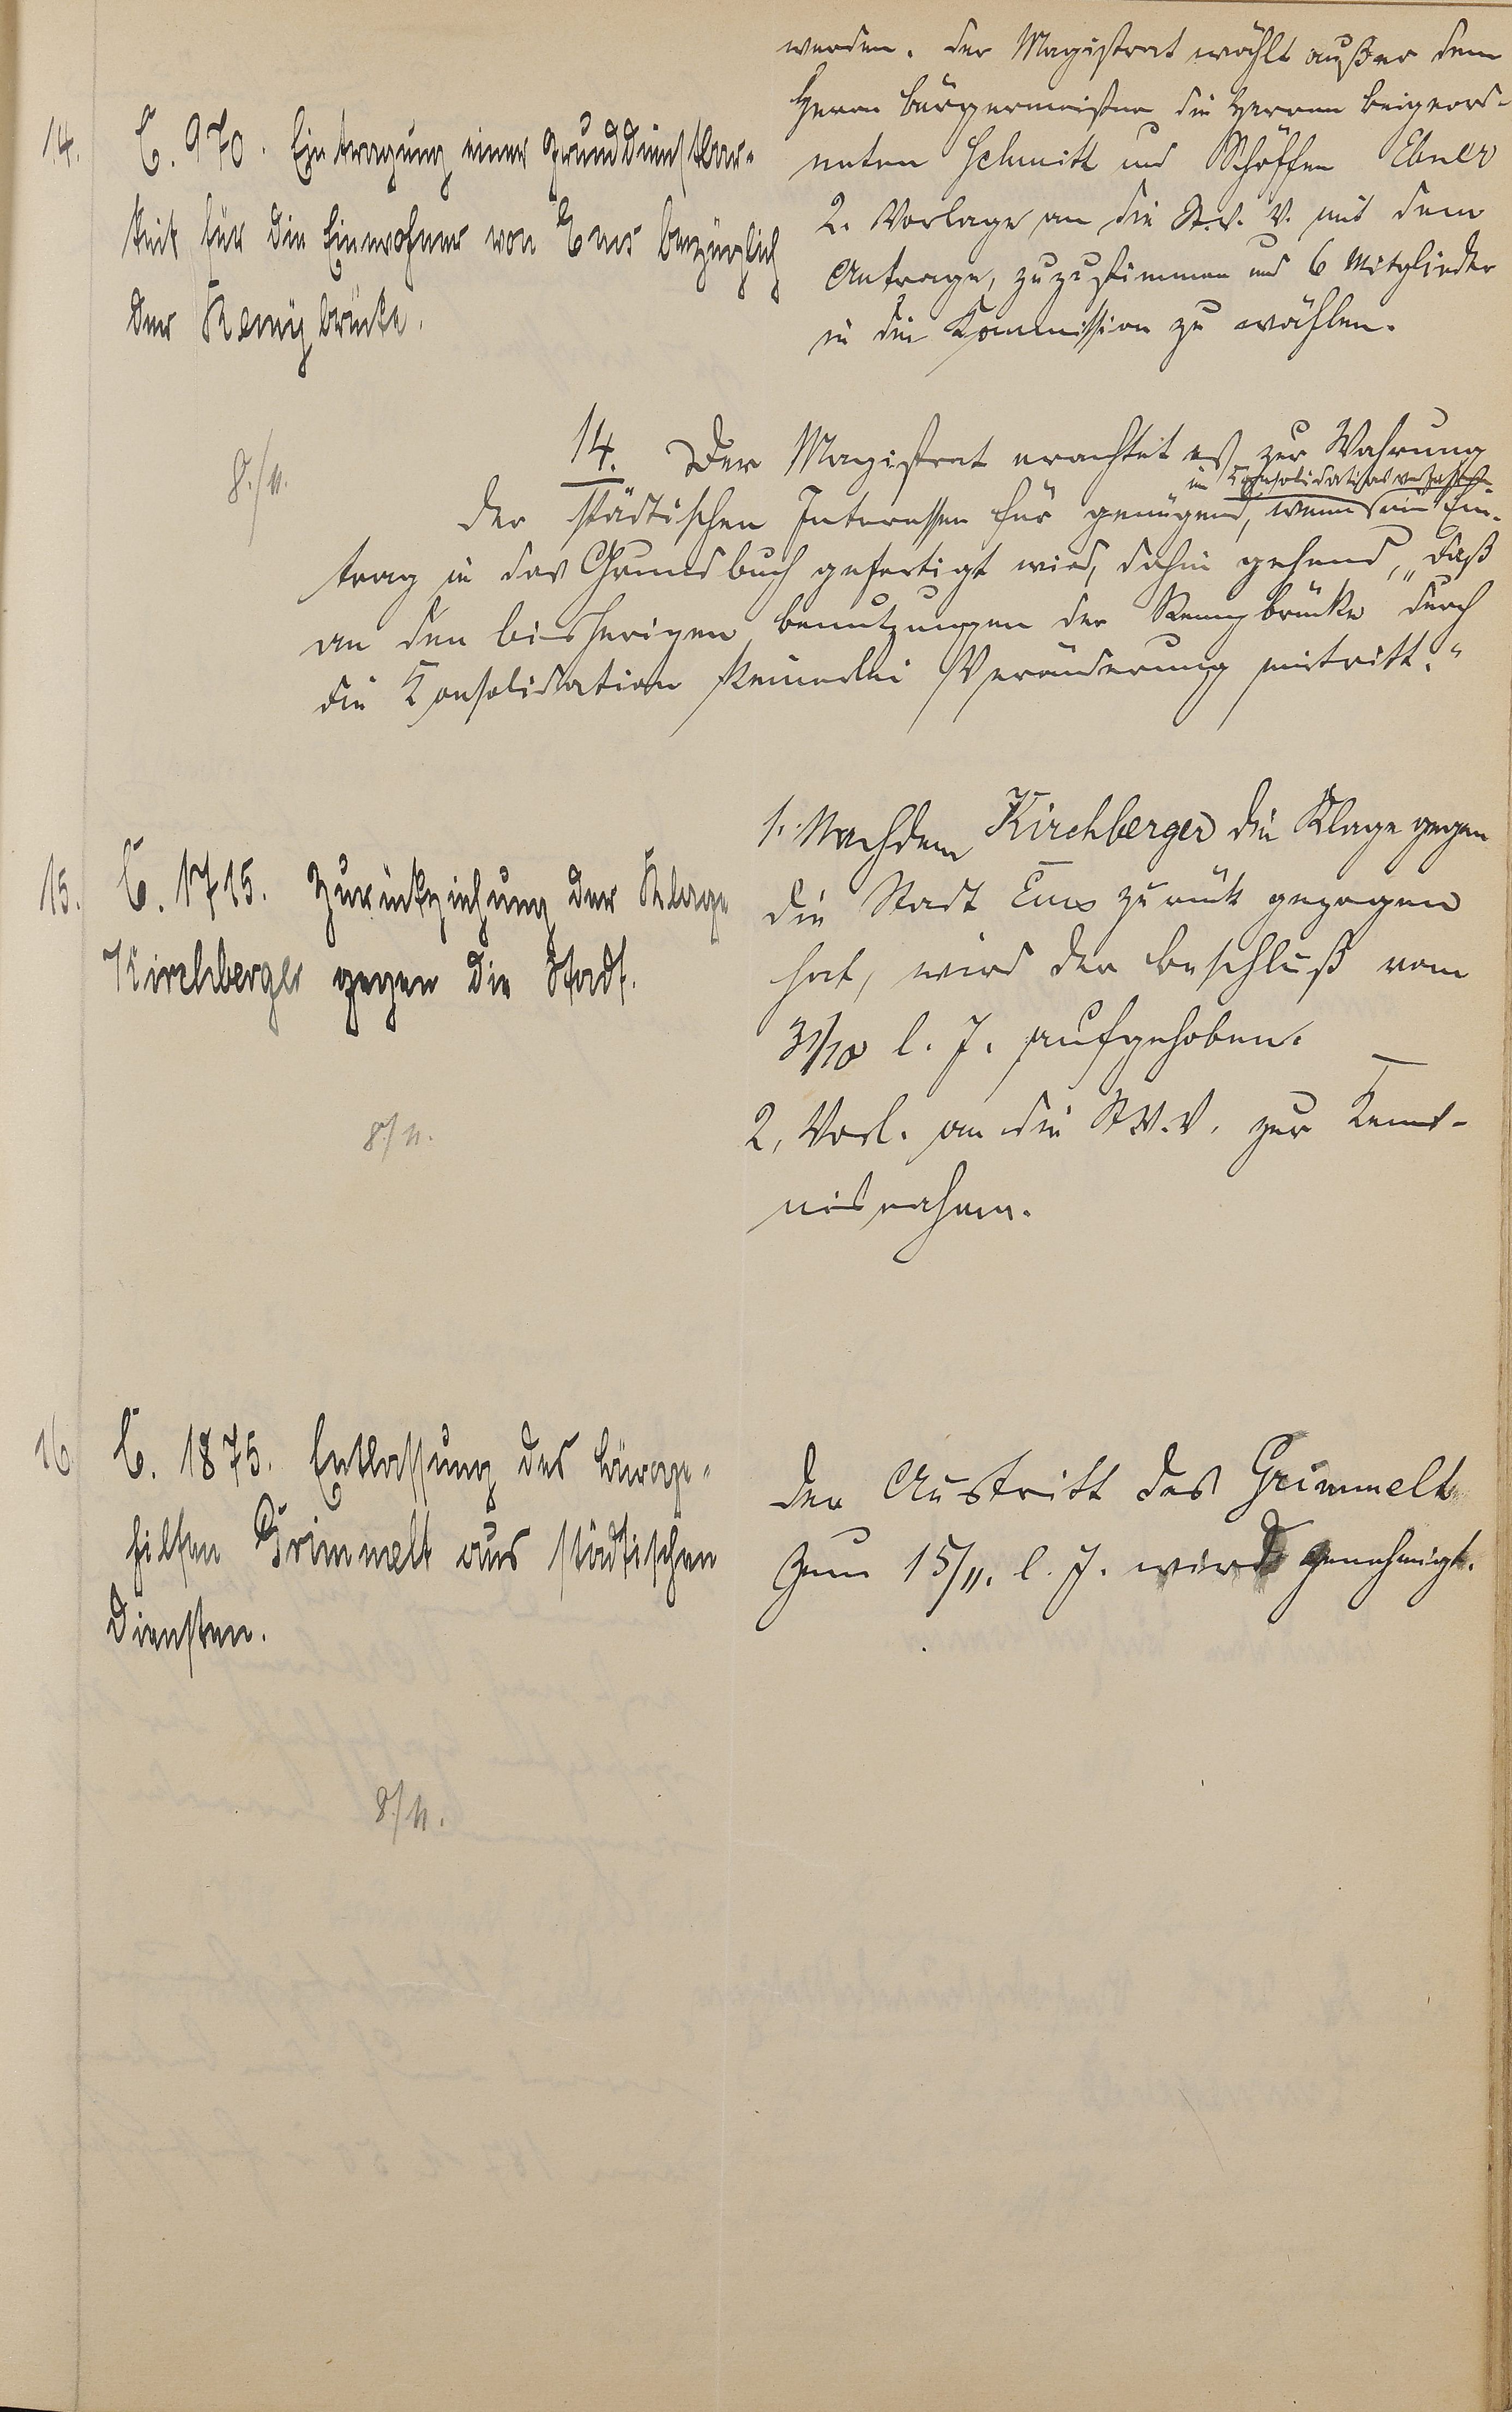 werden. Der Magistrat wählt außer dem
Herrn Bürgermeister die Herren Beigeord-
neten Schmitt und Schöffen Ebner
2. Vorlage an die St.V.V. mit dem
Antrage, zuzustimmen und 6 Mitglieder
in die Kommission zu wählen.
14. C. 970. Eintragung einer Grunddienstbar-
keit für die Einwohner von Ems bezüglich
der Remybrücke.
8./11.
14. Der Magistrat erachtet es zur Wahrung
im Consolidationsverfahren
der städtischen Interessen für genügend, wenn ein Ein-
trag in das Grundbuch gefertigt wird, dahin gehend, „daß
an den bisherigen Benutzungen der Remybrücke durch
die Konsolidation keinerlei Veränderung eintritt."
15. C. 1715. Zurückziehung der Klage
Kirchberger gegen die Stadt.
8/11.
1. Nachdem Kirchberger die Klage gegen
die Stadt Ems zurück gezogen
hat, wird der Beschluß vom
31/10 l. J. aufgehoben.
2, Vorl. an die St.V.V. zur Kennt-
nisnahme.
16. C. 1875. Entlassung des Büroge-
hilfen Grimmelt aus städtischen
Diensten.
8/11.
Der Austritt des Grimmelt
zum 15/11. l. J. wird genehmigt.